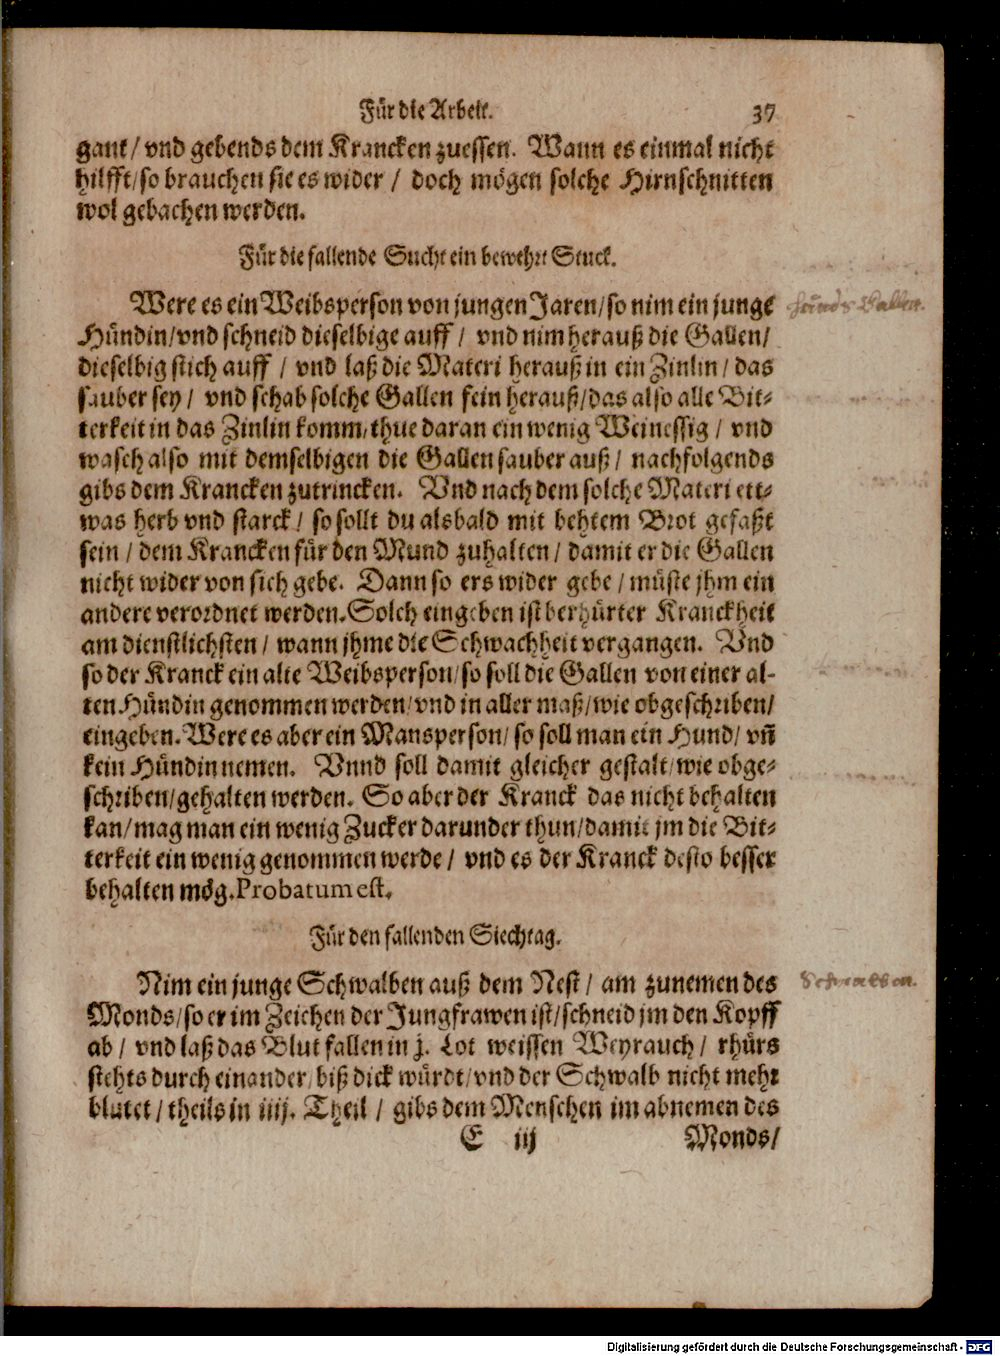 Für die Arbeit. 37
gant / vnd gebends dem Krancken zuessen. Wann es einmal nicht
hilfft / so brauchen sie es wider / doch mögen solche Hirnschnitten
wol gebachen werden.
Für die fallende Sucht ein bewehrt Stuck.
Were es ein Weibsperson von jungen Jaren / so nim ein junge
Hündin / vnd schneid dieselbige auff / vnd nim herauß die Gallen /
dieselbig stich auff / vnd laß die Materi herauß in ein Zinlin / das
sauber sey / vnd schab solche Gallen fein herauß / das also alle Bit-
terkeit in das Zinlin komm / thue daran ein wenig Weinessig / vnd
wasch also mit demselbigen die Gallen sauber auß / nachfolgends
gibs dem Krancken zutrincken. Vnd nach dem solche Materi ett-
was herb vnd starck / so sollt du alsbald mit behtem Brot gefaßt
sein / dem Krancken für den Mund zuhalten / damit er die Gallen
nicht wider von sich gebe. Dann so ers wider gebe / müste jhm ein
andere verordnet werden. Solch eingeben ist berhürter Kranckheit
am dienstlichsten / wann jhme die Schwachheit vergangen. Vnd
so der Kranck ein alte Weibsperson / so soll die Gallen von einer al-
ten Hündin genommen werden / vnd in aller maß / wie obgeschriben /
eingeben. Were es aber ein Mansperson / so soll man ein Hund / vñ
kein Hündin nemen. Vnnd soll damit gleicher gestalt / wie obge-
schriben / gehalten werden. So aber der Kranck das nicht behalten
kan / mag man ein wenig Zucker darunder thun / damit jm die Bit-
terkeit ein wenig genommen werde / vnd es der Kranck desto besser
behalten mög. Probatum est.
Für den fallenden Siechtag.
Nim ein junge Schwalben auß dem Nest / am zunemen des
Monds / so er im Zeichen der Jungfrawen ist / schneid jm den Kopff
ab / vnd laß das Blut fallen in j. Lot weissen Weyrauch / rhürs
stehts durch einander / biß dick würdt / vnd der Schwalb nicht mehr
blutet / theils in iiij. Theil / gibs dem Menschen im abnemen des
E iij Monds /
Hunds Gallen.
Schwalben.
Digitalisierung gefördert durch die Deutsche Forschungsgemeinschaft - DFG